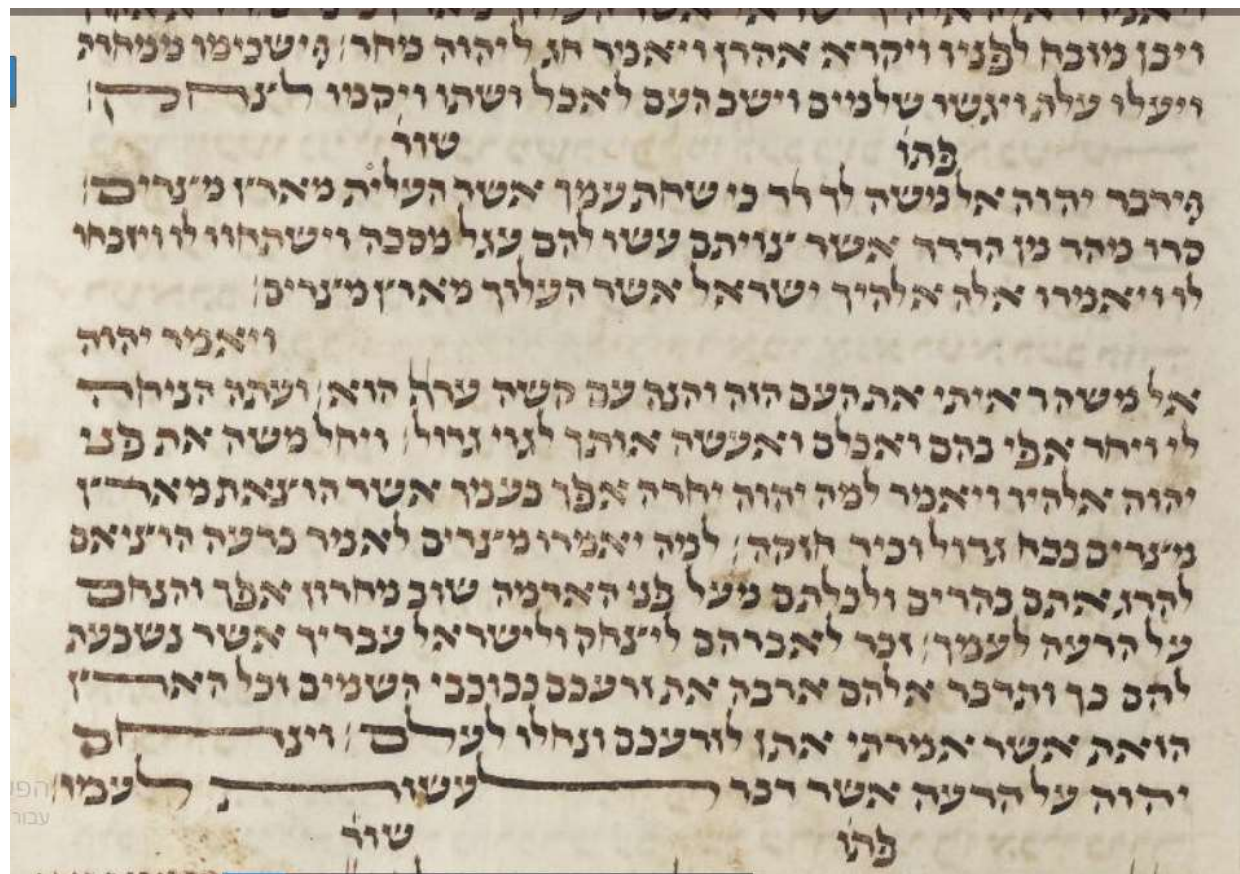 ויבן מזבח לפניו ויקרא אהרן ויאמר חג ליהוה מחר׃ וישכימו ממחרת
ויעלו עלה ויגשו שלמים וישב העם לאכל ושתו ויקמו לצחק׃
פתו שור
וידבר יהוה אל משה לך רד כי שחת עמך אשר העלית מארץ מצרים׃
סרו מהר מן הדרך אשר צויתם עשו להם עגל מסכה וישתחוו לו ויזבחו
לו ויאמרו אלה אלהיך ישראל אשר העלוך מארץ מצרים׃
ויאמר יהוה
אל משה ראיתי את העם הזה והנה עם קשה ערף הוא׃ ועתה הניחה
לי ויחר אפי בהם ואכלם ואעשה אותך לגוי גדול׃ ויחל משה את פני
יהוה אלהיו ויאמר למה יהוה יחרה אפך בעמך אשר הוצאת מארץ
מצרים בכח גדול וביד חזקה׃ למה יאמרו מצרים לאמר ברעה הוציאם
להרג אתם בהרים ולכלתם מעל פני האדמה שוב מחרון אפך והנחם
על הרעה לעמך׃ זכר לאברהם ליצחק ולישראל עבדיך אשר נשבעת
להם בך ותדבר אלהם ארבה את זרעכם ככוכבי השמים וכל הארץ
הזאת אשר אמרתי אתן לזרעכם ונחלו לעלם׃ וינחם
יהוה על הרעה אשר דבר לעשות לעמו׃
פתו שור